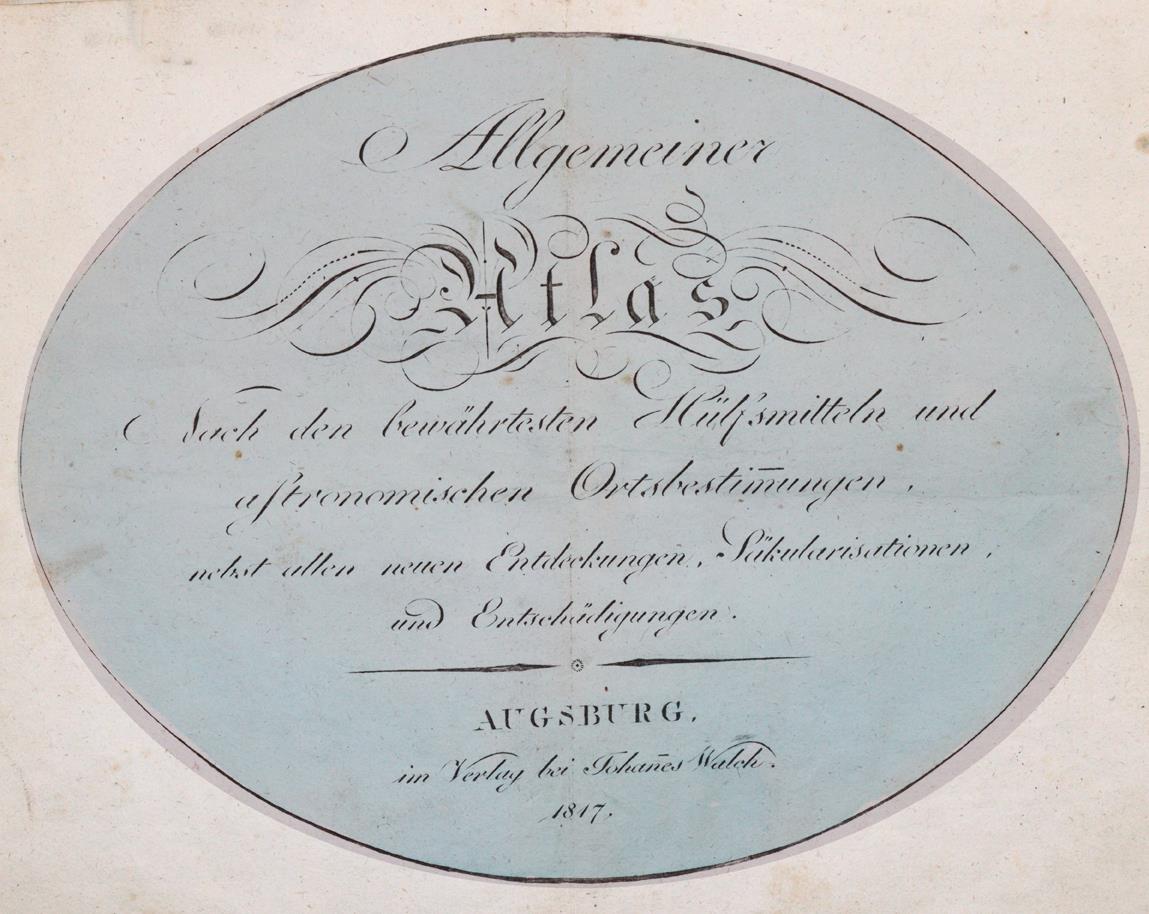 Allgemeiner
Atlas
Nach den bewährtesten Hülfsmitteln und
aſtronomischen Ortsbestim̅ungen,
nebst allen neuen Entdeckungen, Säkularisationen,
und Entschädigungen.
AUGSBURG,
im Verlag bei Iohan̅es Walch.
1817.